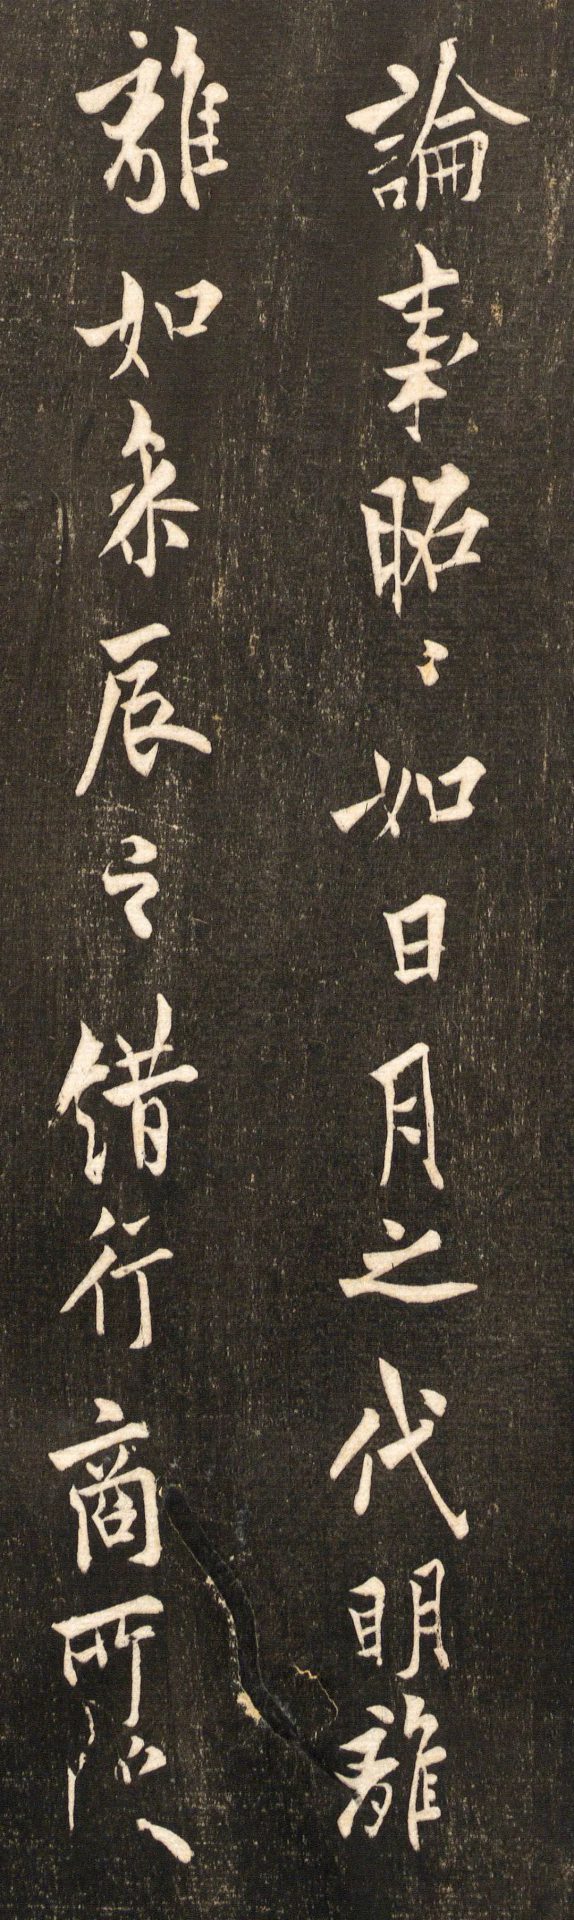 論事昭〻如日月之代明離
離如参辰之错行商所以